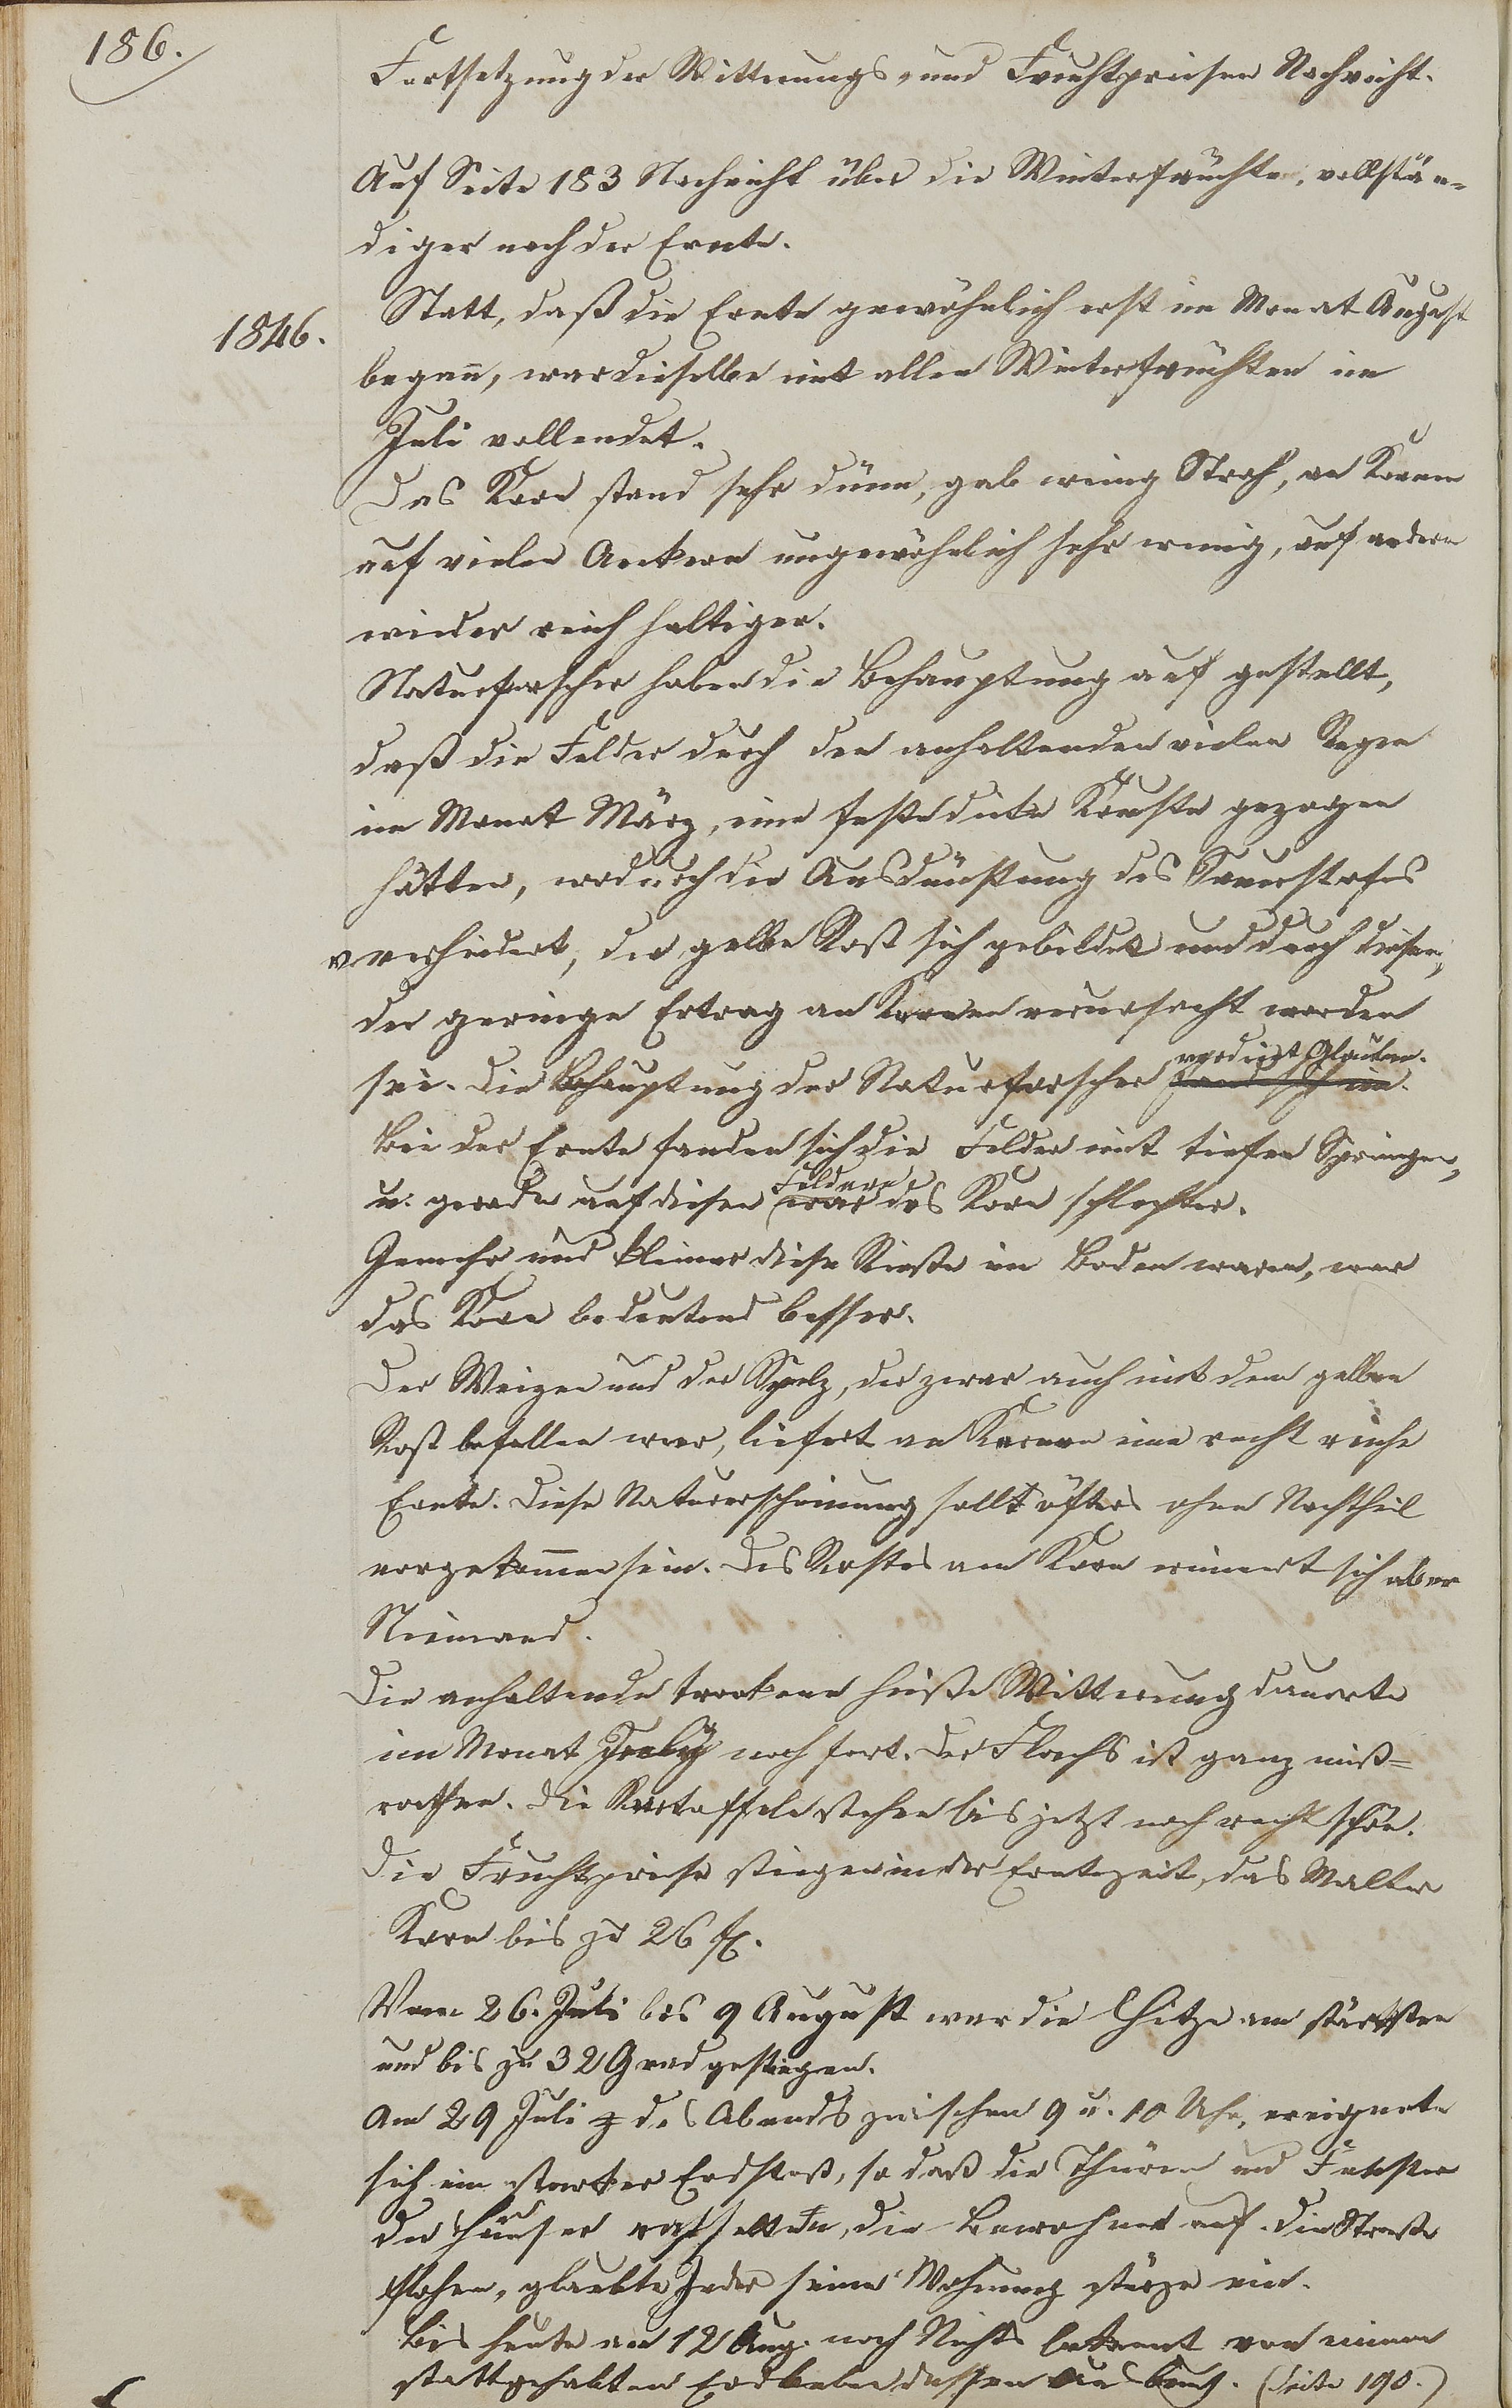 186.
Fortsetzung der Witterungs- und Fruchtpreisen Nachricht.
Auf Seite 183 Nachricht über die Winterfrüchte, vollstän-
diger nach der Ernte.
1846.
Statt, daß die Ernte gewöhnlich erst im Monat August
begann, war dieselbe mit allen Winterfrüchten im
Juli vollendet.
Das Korn stand sehr dünn, gab wenig Stroh, an Körnern
auf vielen Aeckern ungewöhnlich sehr wenig, auf andern
wieder reich haltiger.
Naturforscher haben die Behauptung auf gestellt,
daß die Felder durch den anhaltenden vielen Regen
im Monat März, eine feste dicke Kruste gezogen
hätten, wodurch die Ausdünstung des Sauerstofes
verhindert, der gelbe Rost sich gebildet und durch diesen,
der geringe Ertrag an Körnern verursacht worden
sei. Die Behauptung der Naturforscher verdient Glauben.
Bei der Ernte fanden sich die Felder mit tiefen Sprüngen,
u. gerade auf diesen Feldern war das Korn schlechter.
Je mehr und kleiner diese Riße im Boden waren, war
das Korn bedeutend besser.
Der Weizen und der Spelz, der zwar auch mit dem gelben
Rost befallen war, liefert an Körnern eine recht reiche
Ernte. Diese Naturerscheinung sollt öfters ohne Nachtheil
vorgekommen sein. Des Rostes am Korn erinnert sich aber
Niemand.
Die anhaltende trockene heiße Witterung dauerte
im Monat July noch fort. Der Flachs ist ganz miß=
rathen. Die Kartoffeln stehen bis jetzt noch recht schön.
Die Fruchtpreise stiegen in der Erntezeit, das Malter
Korn bis zu 26 fl.
Vom 26. Juli bis 9 August war die Hitze am stärksten
und bis zu 32 Grad gestiegen.
Am 29 Juli des Abends zwischen 9 u. 10 Uhr, ereignete
sich ein starker Erdstoß, so daß die Thüren und Fenster
der Häuser rasselten, die Bewohner auf die Straße
flohen, glaubte Jeder seine Wohnung stürze ein.
Bis heute am 12 Aug. noch Nichts bekannt von einem
stattgehabten Erdbeben dessen Ausbruch. (Seite 190.)